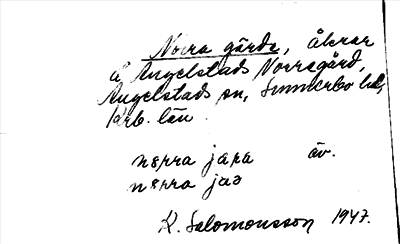 Norra gärde, åkrar
å Angelstads Norregård,
Angelstads sn, Sunnerbo hd,
Krb. län.
nǝrra jaʀa äv.
nǝrra jaə
K. Salomonsson 1947.